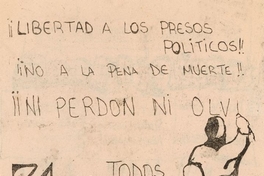 ¡LIBERTAD A LOS PRESOS
POLITICOS!!
¡¡NO A LA PENA DE MUERTE!!
¡¡NI PERDON NI OLVI
TODOS